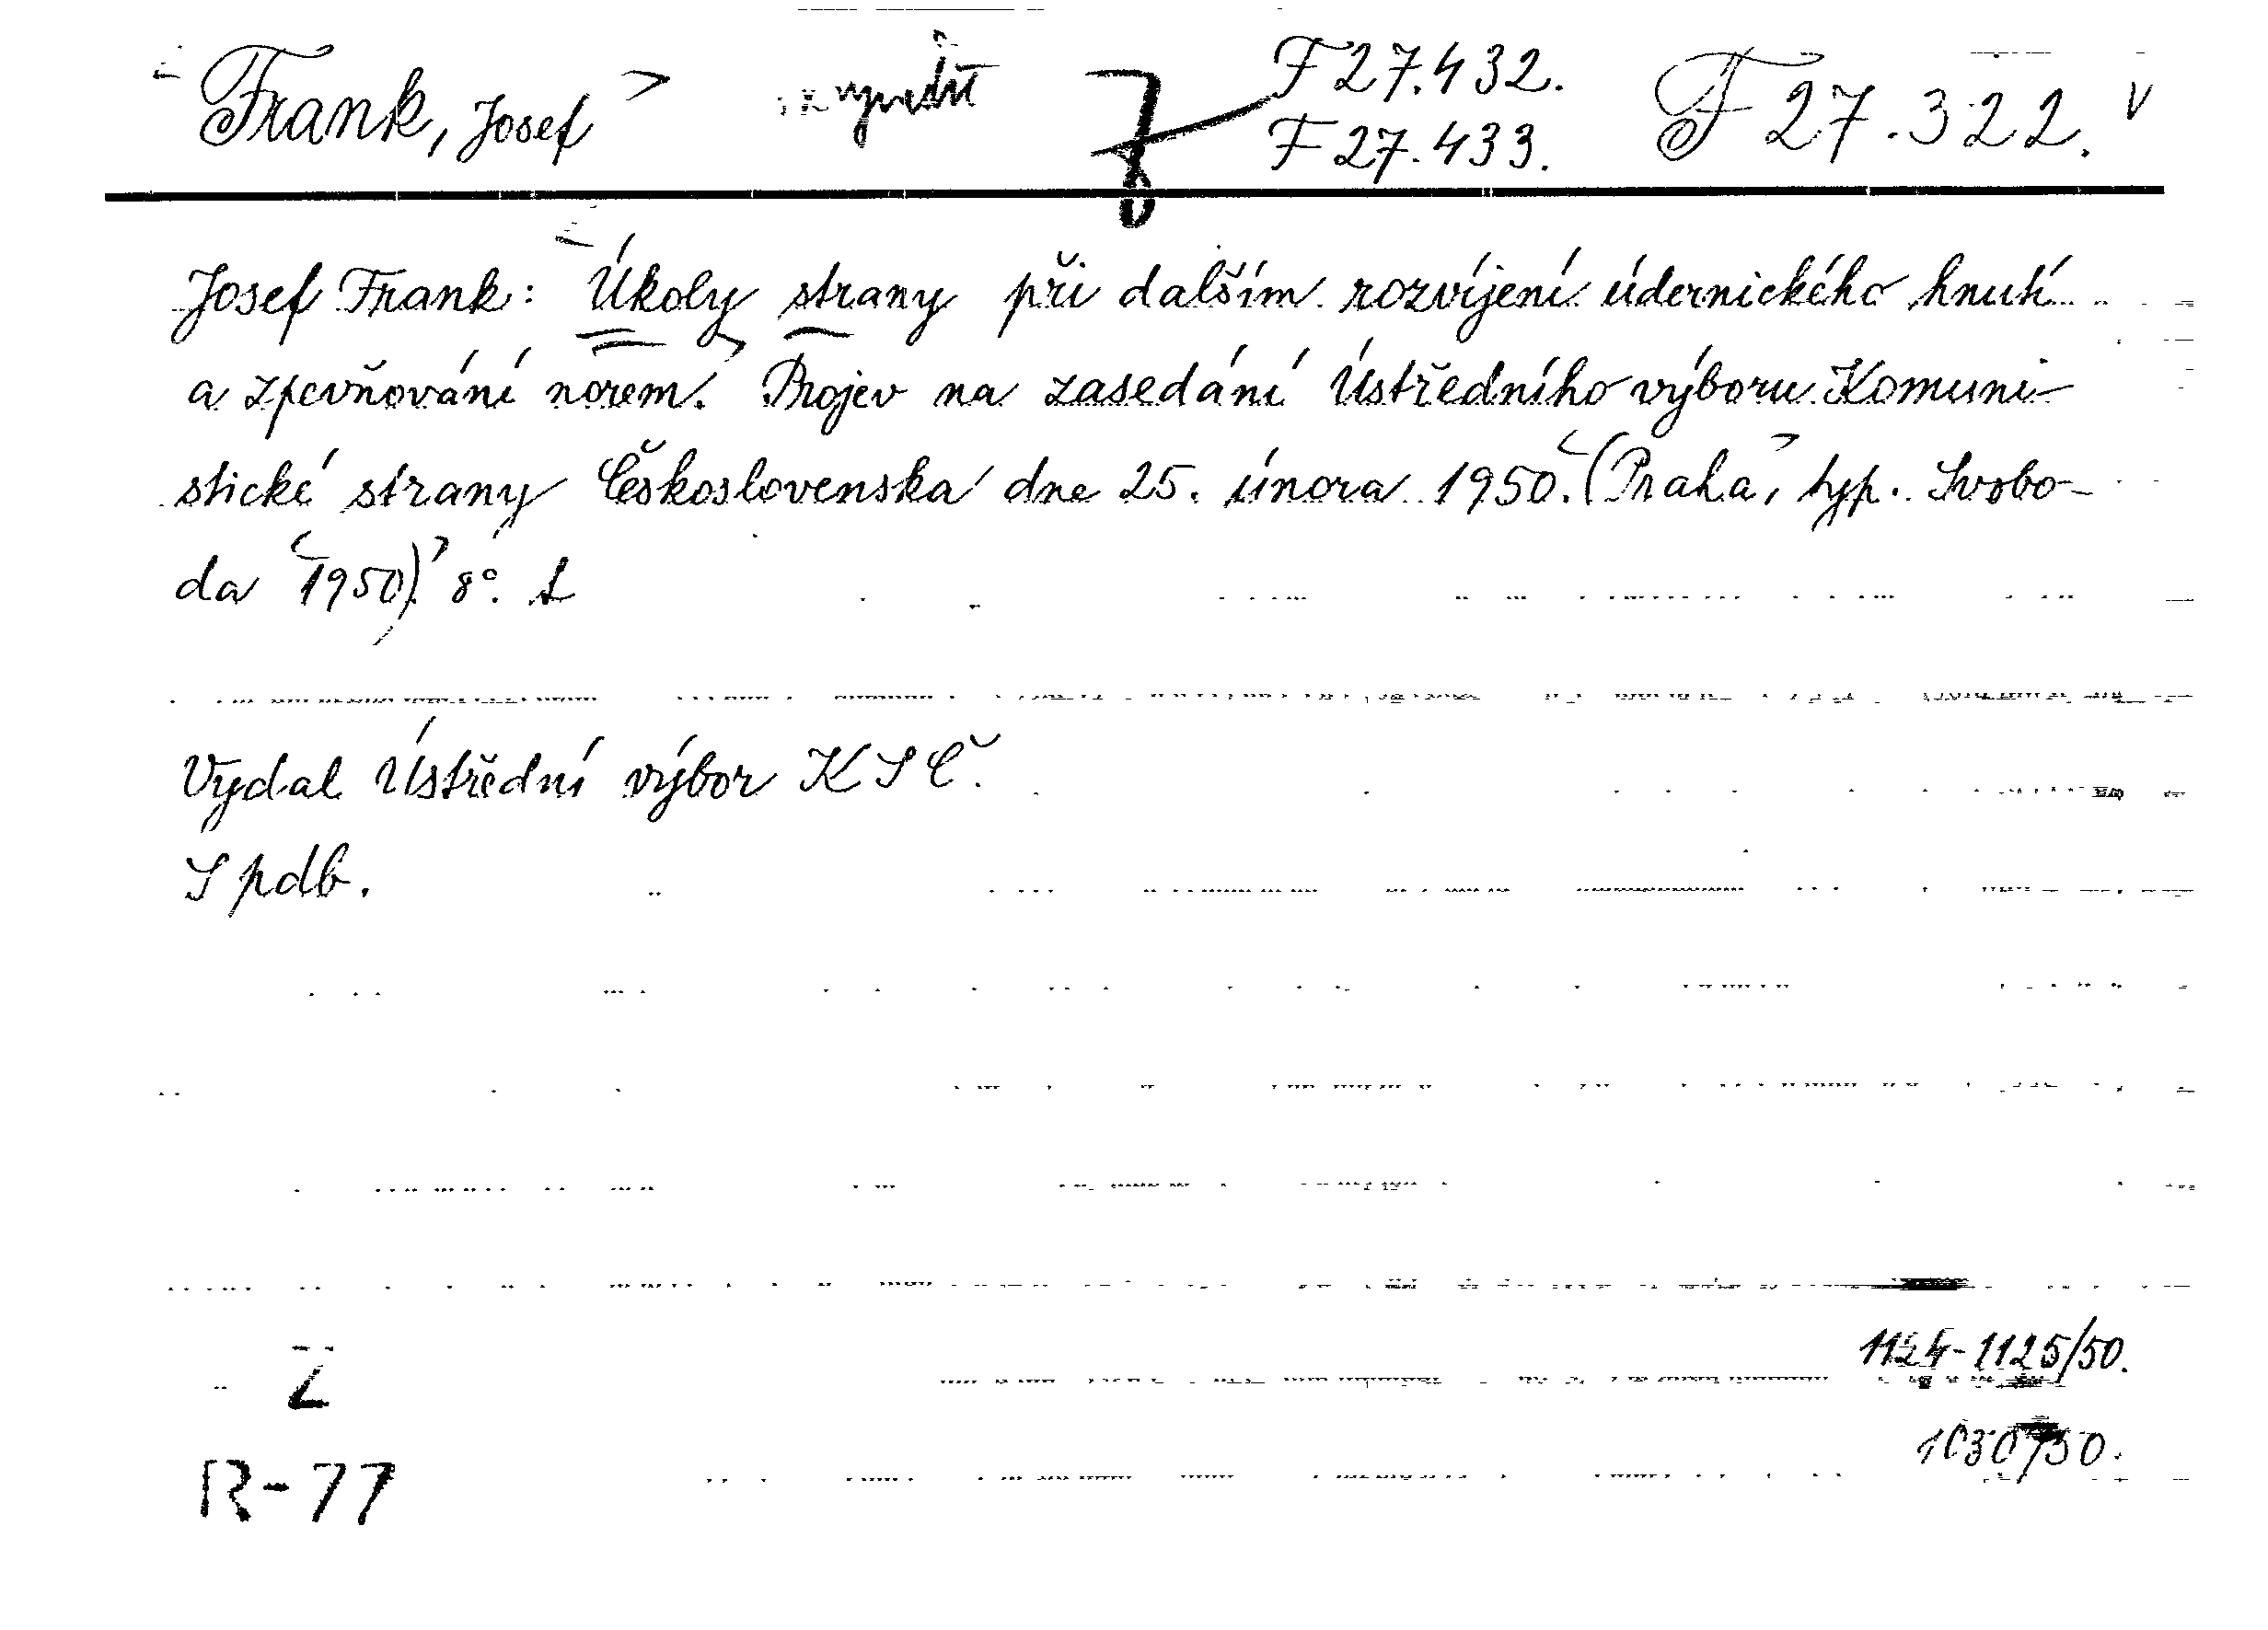 Frank, Josef F 27.432. F 27.322. v
F 27.433.
Josef Frank: Úkoly strany při dalším rozvíjení údernického hnutí
a zpevňování norem. Projev na zasedání Ústředního výboru Komuni-
stické strany Československa dne 25. února 1950. (Praha, typ. Svobo-
da 1950). 8°.
Vydal Ústřední výbor KSČ.
S pdb.
Z
1124-1125/50.
1030/50.
R-77